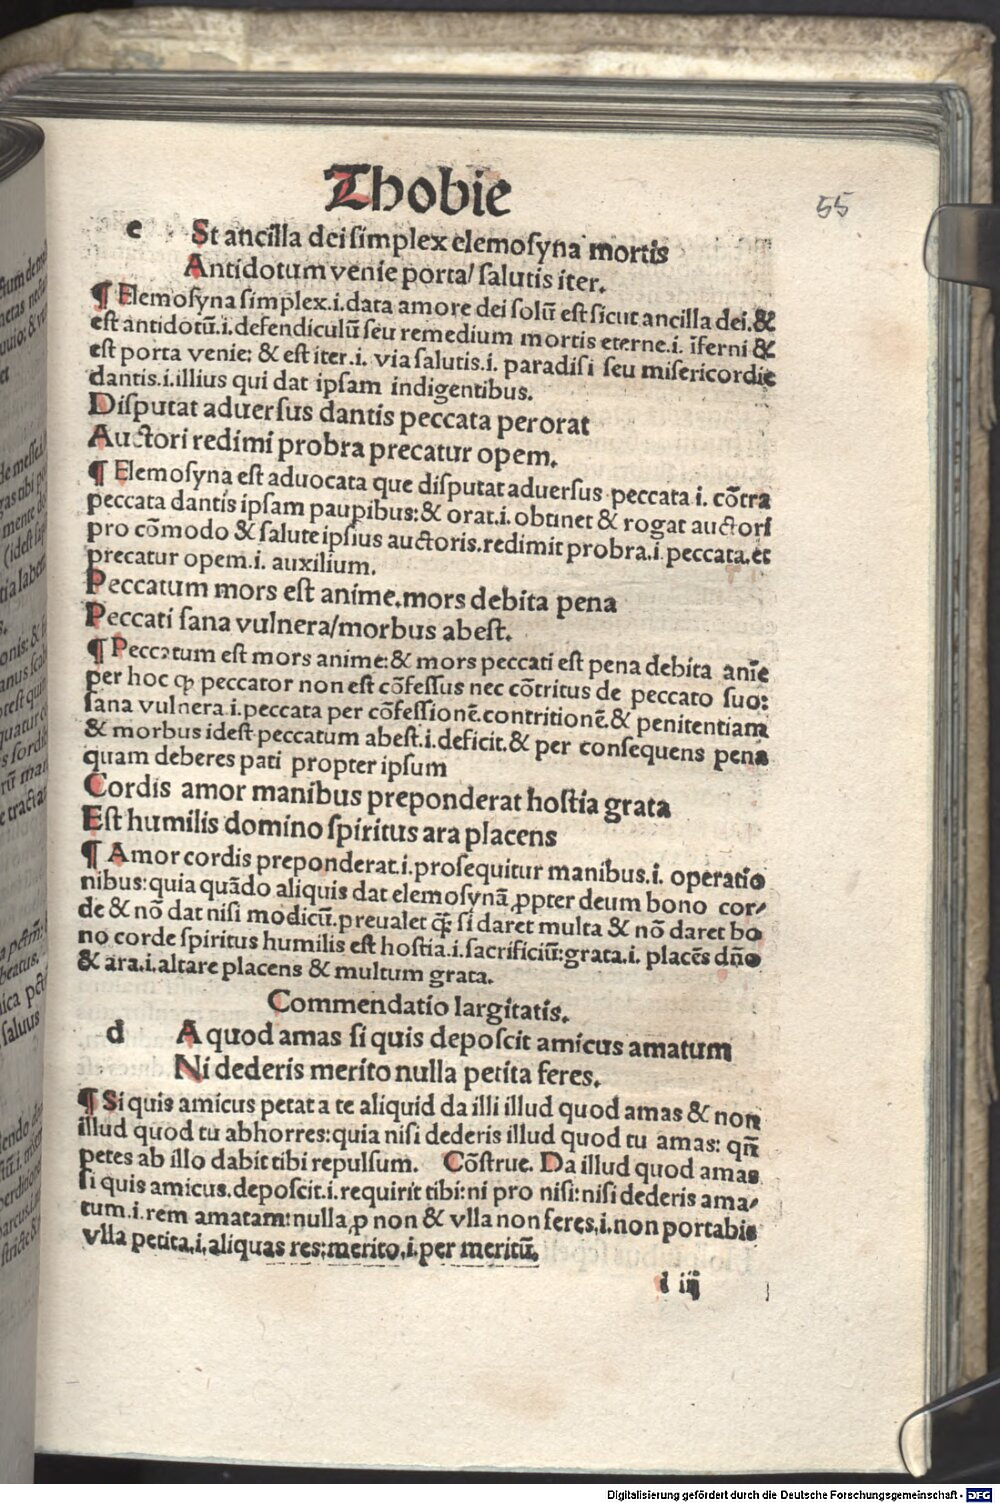 Thobie
55
e St ancilla dei simplex elemosyna mortis
Antidotum venie porta/ salutis iter.
¶ Elemosyna simplex.i.data amore dei solū est sicut ancilla dei.&
est antidotū.i.defendiculū seu remedium mortis eterne.i. īferni &
est porta venie: & est iter.i. via salutis.i. paradisi seu misericordie
dantis.i.illius qui dat ipsam indigentibus.
Disputat aduersus dantis peccata perorat
Auctori redimi probra precatur opem.
¶ Elemosyna est aduocata que disputat aduersus peccata i. cōtra
peccata dantis ipsam paupibus:& orat.i. obtinet & rogat auctori
pro cōmodo & salute ipsius auctoris.redimit probra.i. peccata.et
precatur opem.i. auxilium.
Peccatum mors est anime.mors debita pena
Peccati sana vulnera/morbus abest.
¶ Peccatum est mors anime:& mors peccati est pena debita anīe
per hoc ꝙ peccator non est cōfessus nec cōtritus de peccato suo:
sana vulnera i.peccata per cōfessionē.contritionē.& penitentiam
& morbus idest peccatum abest.i.deficit.& per consequens pena
quam deberes pati propter ipsum
Cordis amor manibus preponderat hostia grata
Est humilis domino spiritus ara placens
¶ Amor cordis preponderat.i.prosequitur manibus.i. operatio
nibus:quia quādo aliquis dat elemosynā ꝓpter deum bono cor/
de & nō dat nisi modicū.preualet ꝙ̄ si daret multa & nō daret bo
no corde spiritus humilis est hostia.i.sacrificiū:grata.i. placēs dn̄o
& ara.i.altare placens & multum grata.
Commendatio largitatis.
d A quod amas si quis deposcit amicus amatum
Ni dederis merito nulla petita feres.
¶ Si quis amicus petat a te aliquid da illi illud quod amas & non
illud quod tu abhorres:quia nisi dederis illud quod tu amas: qn̄
petes ab illo dabit tibi repulsum. Cōstrue. Da illud quod amas
si quis amicus.deposcit.i.requirit tibi:ni pro nisi:nisi dederis ama/
tum.i.rem amatam:nulla ꝓ non & vlla non feres.i.non portabis
vlla petita.i.aliquas res:merito.i.per meritū.
d iij
Digitalisierung gefördert durch die Deutsche Forschungsgemeinschaft - DFG